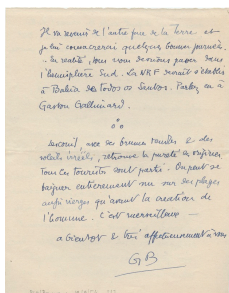 Il va revenir de l'autre face de la terre et
je lui consacrerai quelques bonnes journées.
En réalité, tous vous devriez passer dans
l'hémisphère Sud. La NRF serait établie
à Bahia de todos os Santos. Parlez-en à
Gaston Gallimard.
avec ses brumes et des
soleils retrouve la pureté
Tous les Touristes sont partis. On peut se
baigner entièrement nu sur des plages
aussi vierges qu'avant la création de
l'homme. C'est merveilleux —
à bientôt et très affectionnément à vous
GB